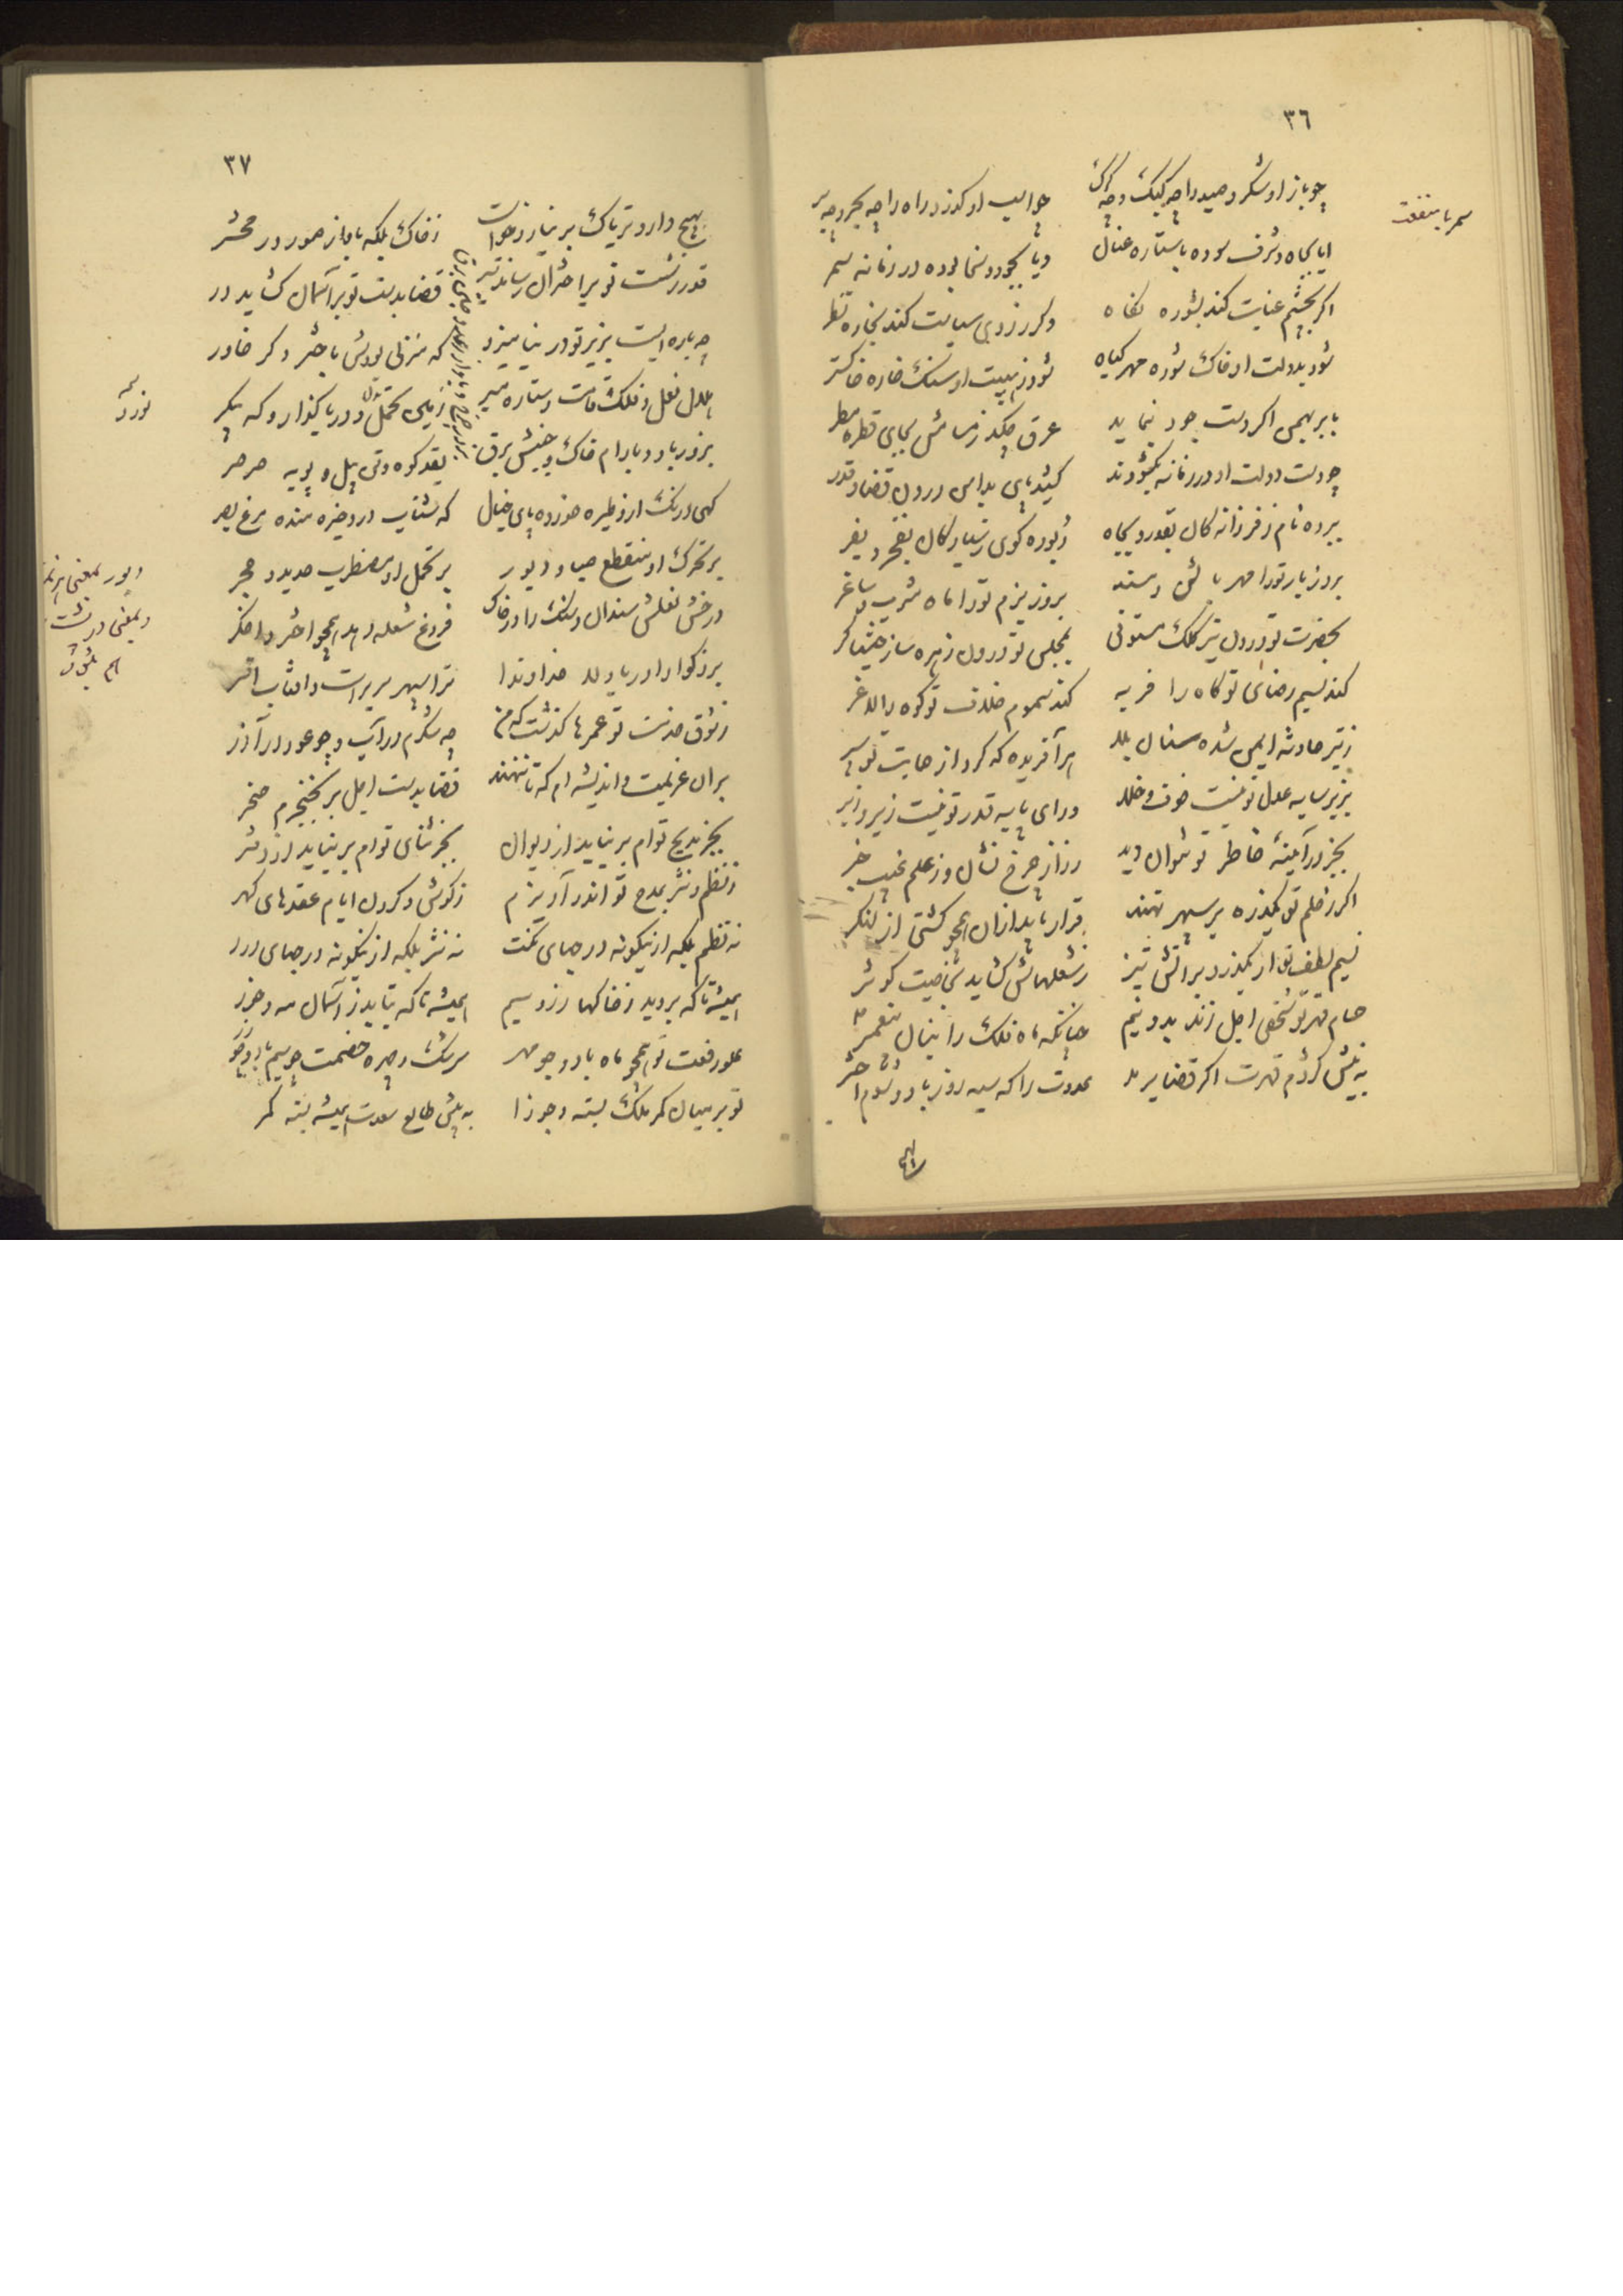 ۳٦
چو باز او شکرد صید را چه کبک و چه
چو اسب او گذرد راه را چه بحر و چه بر
ایا بجاه و شرف سوده با ستاره عنان
و یا بجود و سخا بوده در زمانه سمر
اگر بچشم عنایت کند بشوره نگاه
وگر ز روی سیاست کند بخاره نظر
شود بدولت او خاک شوره مهر گیاه
شود ز هیبت او سنگ خاره خاکستر
بابر بهمن اگر دست جود بنماید
عرق چکد ز مسامش بجای قطره مطر
چو دست دولت او در زمانه بگشودند
کشید پای بدامن درون قضا و قدر
ببرده نام ز فرزانه کان بقدر و بجاه
ربوده گوی ز نیاکان بفخر و بفر
بروز بار تو را مهر بالش و مسند
بروز بزم تو را ماه شرب و ساغر
بحضرت تو درون تیر کلک مستوفی
بمجلس تو درون زهره ساز خنیاگر
کند نسیم رضای تو کاه را فربه
کند سموم خلاف تو کوه را لاغر
ز تیر حادثه ایمن شده سنان بلا
هر آفریده که کرد از حمایت تو سپر
بزیر سایه عدل تو نیست خوف و خطر
ورای پایه قدر تو نیست زیر و زبر
بجز در آینهٔ خاطر تو نتوان دید
راز چرخ نشان و ز علم غیب خبر
اگر ز حلم تو یکذره بر سپهر نهند
قرار یابد از آن همچو کشتی از لنگر
نسیم لطف تو ار بگذرد بر آتش تیز
ز شعلهاش گشاید خاصیت کوثر
حسام قهر تو شخص اجل زند بدو نیم
چنانکه ماه فلک را بنان پیغمبر
به نیش کژدم قهرت اگر قضا بر
عدوت را که سیه روز باد و شوم اختر
بهیچ
۳۷
بهیچ دارو و تریاک بر نیارد خواست
ز خاک بلکه باواز صور در محشر
قدر ز شست تو بر اختران رساند تیر
قضا بدست تو بر آسمان گشاید در
چه باره ایست بزیر تو در بنامیزد
که منزلی بودش باختر دگر خاور
هلال نعل و فلک قامت و ستاره مسیر
زمین تحمل و دریا گذار و که پیکر
بزور باد و بارام خاک و جنبش برق
بقد کوه و تن پیل و پویه صرصر
گهی درنگ ازو طیره خورده پای خیال
گه شتاب درو خیره مانده مرغ بصر
بر تحرک او منقطع صبا و دبور
بر تحمل او مضطرب حدید و حجر
درخش نعلش سندان و سنگ را در خاک
فروغ شعله دهد همچو اختر و اخگر
بزرگوارا دریا دلا خداوندا
ترا سپهر سریر است و آفتاب افسر
ز شوق خدمت تو عمرها گذشت که من
چه شکرم در آب و چو عود در آذر
بران عزیمت و اندیشه ام که تا ننهند
قضا بدست اجل بر بخنجرم خنجر
بجز مدیح توام بر نیاید از دیوان
بجز ثنای توام بر نیاید از دفتر
ز نظم و نثر بمدح تو اندر آویزم
ز گوش و گردن ایام عقدهای گهر
نه نظم بلکه ازینگونه درجهای نکت
نه نثر بلکه ازینگونه درجهای درر
همیشه تا که بروید ز خاکها زر و سیم
همیشه تا که بتابد ز آسمان مه و خور
علو رفعت تو همچو ماه باد و چو مهر
سرشک و چهره خصمت چو سیم باد و چو زر
تو بر میان کمر ملک بسته و جوزا
به پیش طالع سعدت همیشه بسته کمر